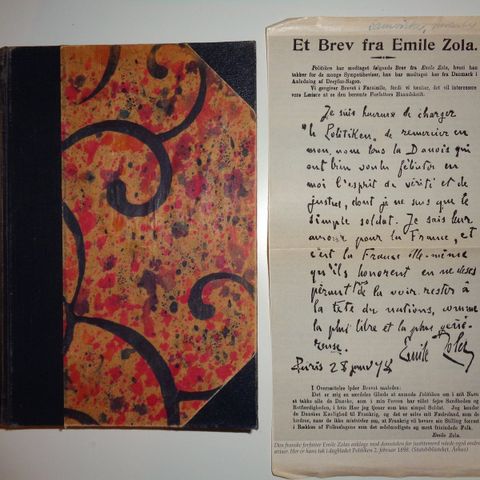 Et Brev fra Emile Zola.
Politiken har modtaget følgende Brev fra Emile Zola, hvori han
takker for de mange Sympathibeviser, han har modtaget her fra Danmark i
Anledning af Dreyfus-Sagen.
Vi gengiver Brevet i Facsimile, fordi vi tænker, det vil interessere
vore Læsere at se den berømte Forfatters Haandskrift.
Je suis heureux de charger
"le Politiken" de remercier en
mon nom tous les Danois qui
ont bien voulu féliciter en
moi l'esprit de vérité et de
justice, dont je ne suis que le
simple soldat. Je sais leur
amour pour la France, et
c'est la France elle-même
qu'ils honorent en ne déses
pérant de la voir rester à
la tête des nations, comme
la plus libre et la plus géné-
reuse.
Emile Zola
Paris 28 janv 98
I Oversættelse lyder Brevet saaledes:
Det er mig en særdeles Glæde at anmode Politiken om i mit Navn
at takke alle de Danske, som i min Person har villet fejre Sandhedens og
Retfærdighedens, i hvis Hær jeg tjener som kun simpel Soldat. Jeg kender
de Danskes Kærlighed til Frankrig, og det er selve mit Fædreland, som de
hædrer, naar de ikke mistvivler om, at Frankrig vil bevare sin Stilling forrest
i Rækken af Folkeslagene som det ædelmodigste og mest frisindede Folk.
Emile Zola.
Den franske forfatter Emile Zolas anklage mod domstolen for justitsmord vakte også
artiser. Her er hans tak i dagbladet Politiken 2. februar 1898. (Statsbiblioteket, Århus)